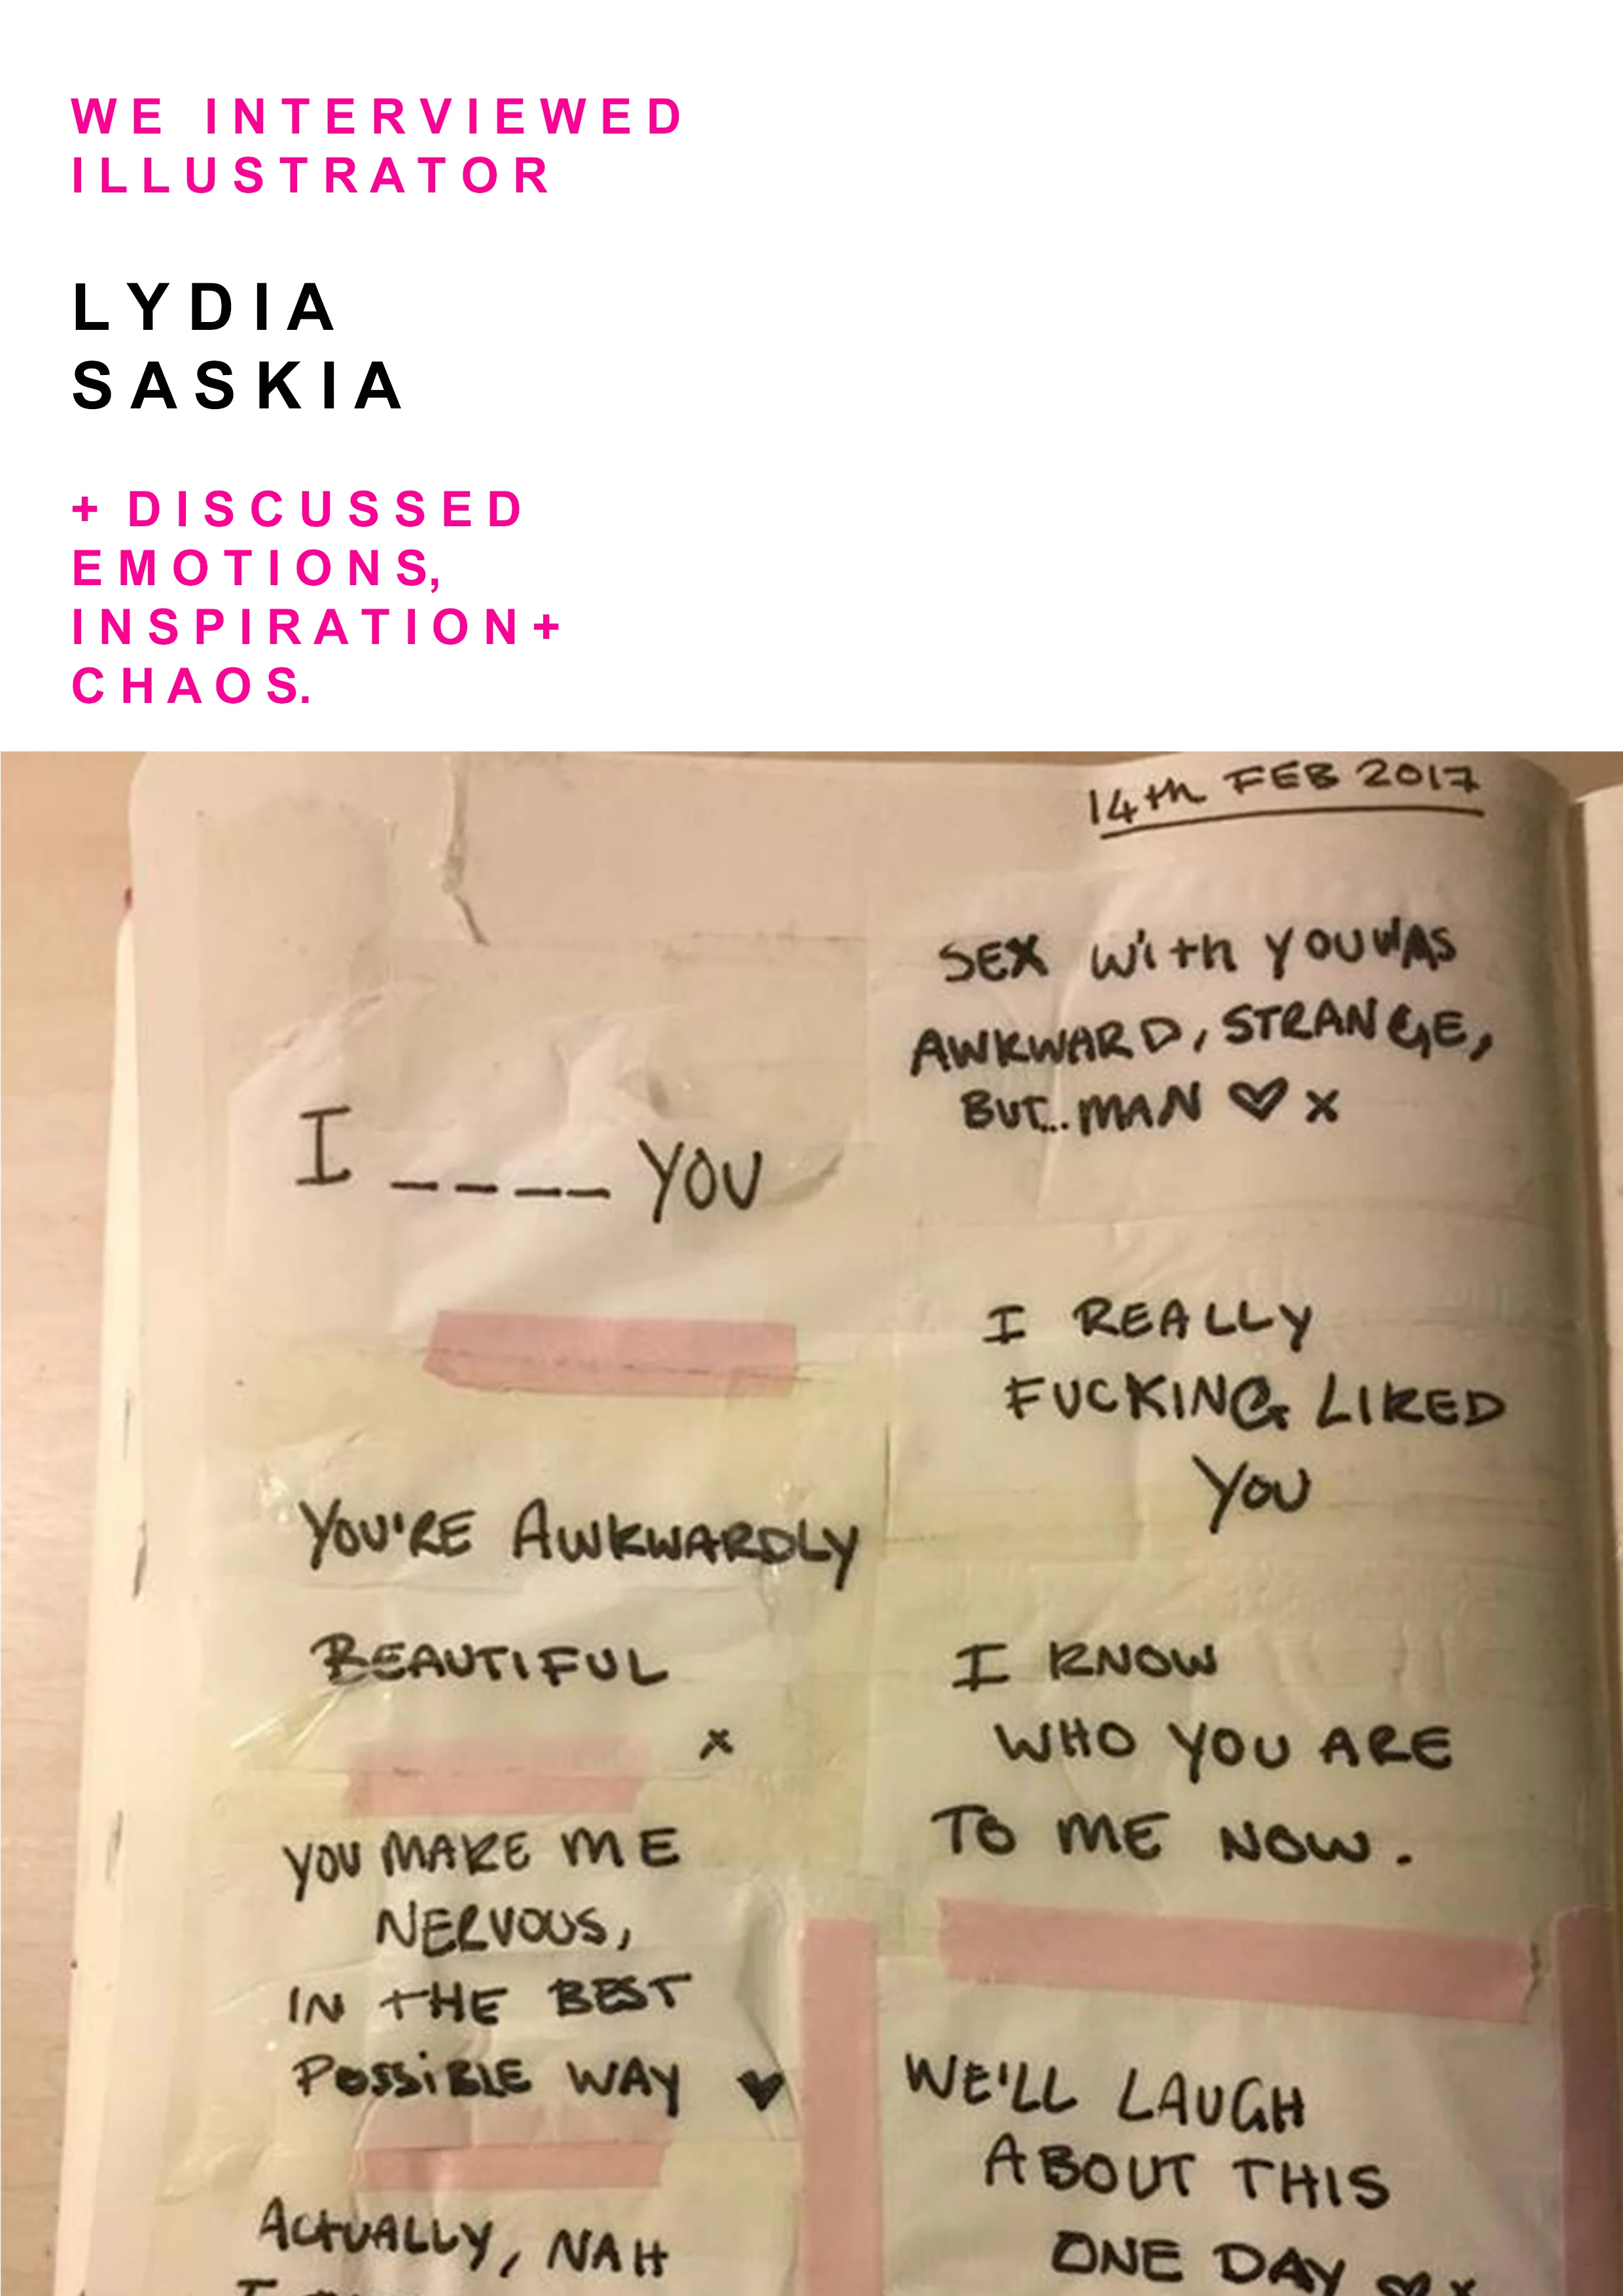 WE INTERVIEWED
ILLUSTRATOR
LYDIA
SASKIA
+ DISCUSSED
EMOTIONS,
INSPIRATION+
CHAOS.
14th FEB 2017
I _ _ _ _ YOU
YOU'RE AWKWARDLY
BEAUTIFUL
x
YOU MAKE ME
NERVOUS,
IN THE BEST
POSSiBLE WAY ♥
ACtUALLY, NAH
SEX With YOU WAS
AWKWARD, STRANGE,
BUT... MAN ♡ x
I REALLY
FUCKING LIKED
YOU
I KNOW
WHO YOU ARE
TO ME NOW.
WE'LL LAUGH
ABOUT THIS
ONE DAY ♡x